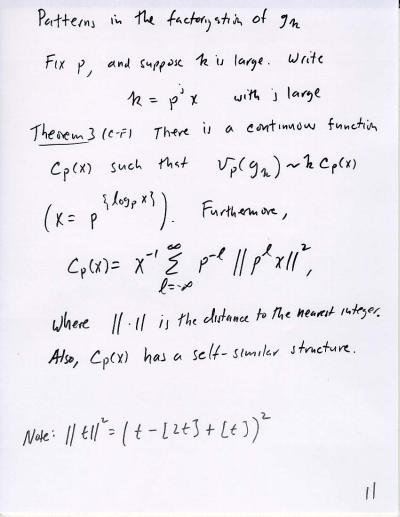 Patterns in the factorization of g_k
Fix p, and suppose k is large. Write
k = p^j x with j large
Theorem 3 (C-F) There is a continuous function
C_p(x) such that v_p(g_k) ~ k C_p(x)
(x = p^{\{log_p x\}}). Furthermore,
C_p(x) = x^{-1} \sum_{l=-\infty}^{\infty} p^{-l} ||p^l x||^2,
where ||·|| is the distance to the nearest integer.
Also, C_p(x) has a self-similar structure.
Note: ||t||^2 = (t - [2t] + [t])^2
11